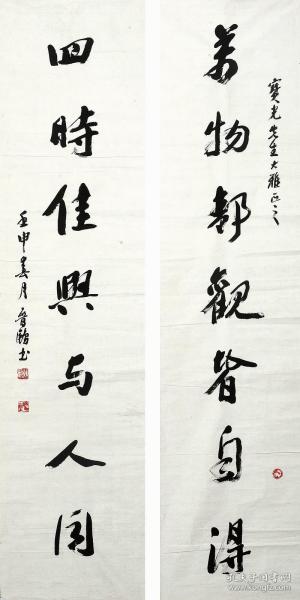 寶光先生大雅正之
萬物靜觀皆自得
四時佳興与人同
壬申春月
孔夫子旧书网